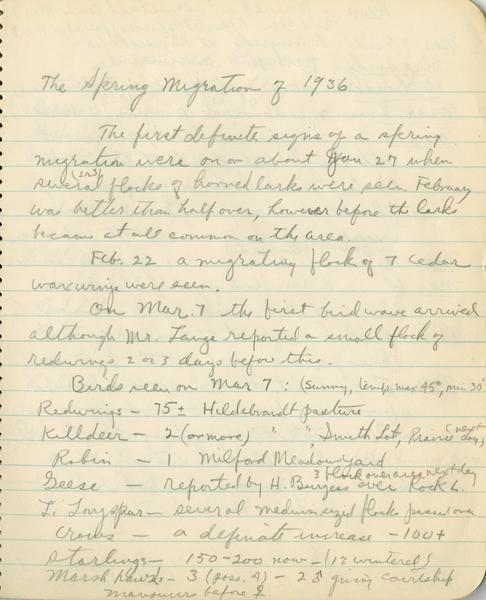 The Spring Migration of 1936
The first definite signs of a spring
migration were on or about Jan. 27 when
several (2 or 3) flocks of horned larks were seen. February
was better than half over, however before the larks
became at all common on the area.
Feb. 22 a migrating flock of 7 cedar
waxwings were seen.
On Mar. 7 the first bird wave arrived
although Mr. Lange reported a small flock of
redwings 2 or 3 days before this.
Birds seen on Mar 7: (Sunny, temp. max 45°, min. 30°
Redwings - 75± Hildebrandt pasture
Killdeer - 2 (or more) " " , Smith Lot, Prairie (next day)
Robin - 1 Milford Meadow yard
3 flocks over area next day
Geese - reported by H. Burgess over Rock L.
L. Longspur - several medium sized flocks passed over
Crows - a definate increase - 100+
Starlings - 150-200 now - (12 wintered)
Marsh hawks - 3 (poss. 4) - 2 ♂ giving courtship
manouvers before ♀.